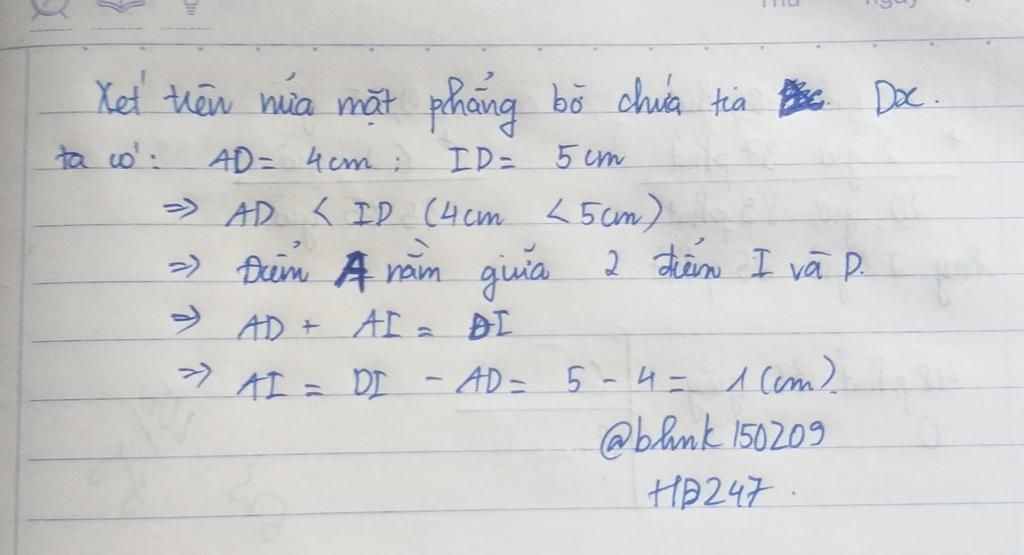 Xét trên nửa mặt phẳng bờ chứa tia Dx.
ta có: AD = 4cm; ID = 5cm
=> AD < ID (4cm < 5cm)
=> Điểm A nằm giữa 2 điểm I và D.
=> AD + AI = DI
=> AI = DI - AD = 5 - 4 = 1 (cm).
@blink150209
HD247.